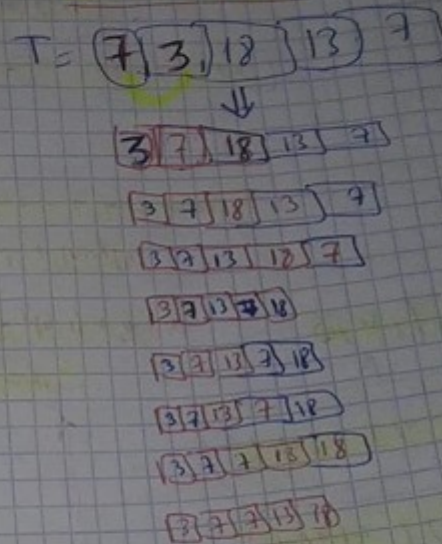 T= 7 3 18 13 7
⇓
3 7 18 13 7
3 7 18 13 7
3 7 13 18 7
3 7 13 7 18
3 7 13 7 18
3 7 13 7 18
3 7 7 13 18
3 7 7 13 18